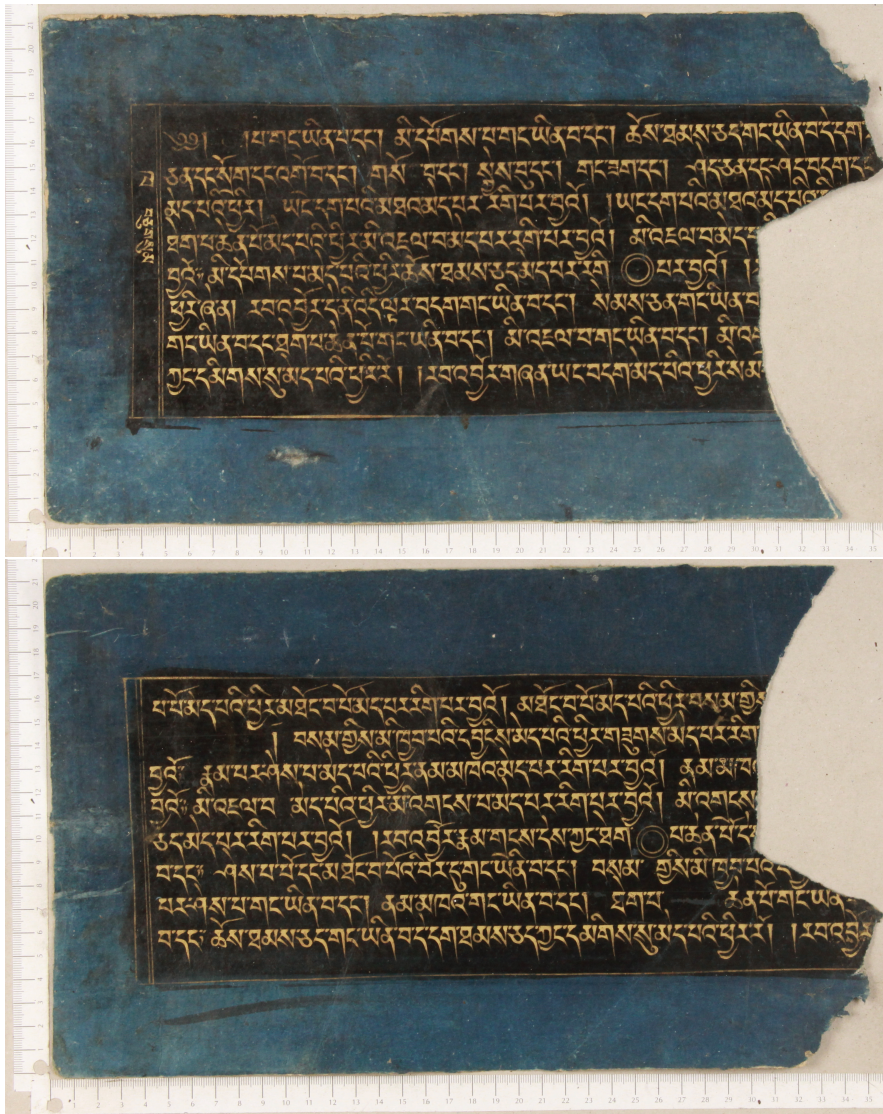 ༄༅། །པ་གང་ཡིན་པ་དང༌། མི་དམིགས་པ་གང་ཡིན་བ་དང༌། ཆོས་ཐམས་ཅད་གང་ཡིན་བ་དེ་དག་
ཅན་དང་སྲོག་དང་འགྲོ་བ་དང༌། གསོ་བ་དང༌། སྐྱེས་བུ་དང༌། གང་ཟག་དང༌། ཤེད་ཅན་དང་ཤེད་བདག་ད
མེད་པའི་ཕྱིར། ཡང་དག་པའི་མཐའ་མེད་པར་རིག་པར་བྱའོ། །ཡང་དག་པའི་མཐའ་མེད་པའི་
ཐེག་པ་ཆེན་པོ་མེད་པའི་ཕྱིར་མི་འཇལ་བ་མེད་པར་རིག་པར་བྱའོ། མི་འཇལ་བ་མེད་པ
བྱའོ༎ མི་དམིགས་པ་མེད་པའི་ཕྱིར་ཆོས་ཐམས་ཅད་མེད་པར་རིག་པར་བྱའོ། །
ཕྱིར་ཞེ་ན། རབ་འབྱོར་དེ་ནི་འདི་ལྟར་བདག་གང་ཡིན་བ་དང༌། སེམས་ཅན་གང་ཡིན་བ
གང་ཡིན་བ་དང་ཐེག་པ་ཆེན་པོ་གང་ཡིན་བ་དང༌། མི་འཇལ་བ་གང་ཡིན་བ་དང༌། མི་འ
ཀྱང་དམིགས་སུ་མེད་པའི་ཕྱིར་རོ། །རབ་འབྱོར་གཞན་ཡང་བདག་མེད་པའི་ཕྱིར་སེམ
པ་ གཅུགསུམ
པ་པོ་མེད་པའི་ཕྱིར་མཐོང་བ་པོ་མེད་པར་རིག་པར་བྱའོ། མཐོང་བ་པོ་མེད་པའི་ཕྱིར་བསམ་གྱིས་
། བསམ་གྱིས་མི་ཁྱབ་པའི་དབྱིངས་མེད་པའི་ཕྱིར་གཟུགས་མེད་པར་རིག་
བྱའོ༎ རྣམ་པར་ཤེས་པ་མེད་པའི་ཕྱིར་ནམ་མཁའ་མེད་པར་རིག་པར་བྱའོ། ནམ་མཁ
བྱའོ༎ མི་འཇལ་བ་མེད་པའི་ཕྱིར་མི་འགངས་པ་མེད་པར་རིག་པར་བྱའོ། མི་འགངས་
ཅད་མེད་པར་རིག་པར་བྱའོ། །རབ་འབྱོར་རྣམ་གངས་དེས་ཀྱང་ཐེག་པ་ཆེན་པོ་དེ
བ་དང༎ ཤེས་པ་པོ་དང་མཐོང་བ་པོའི་བར་དུ་གང་ཡིན་བ་དང༌། བསམ་གྱིས་མི་ཁྱབ་པའི་ད
པར་ཤེས་པ་གང་ཡིན་བ་དང༌། ནམ་མཁའ་གང་ཡིན་བ་དང༌། ཐེག་པ་ ཆེན་པོ་གང་ཡིན་
བ་དང་ ཆོས་ཐམས་ཅད་གང་ཡིན་བ་དེ་དག་ཐམས་ཅད་ཀྱང་དམིགས་སུ་མེད་པའི་ཕྱིར་རོ། །རབ་འབྱོར་